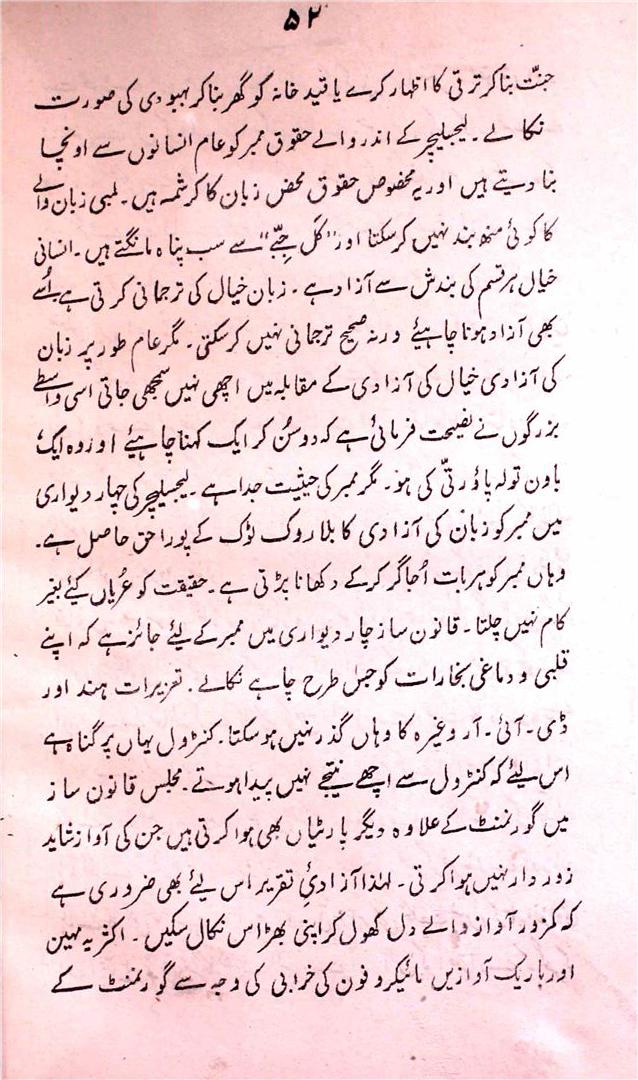 ۵۲
جنّت بنا کر ترقی کا اظہار کرے یا قید خانہ کو گھر بنا کر بہبودی کی صورت
نکالے ۔ لیجیلیچر کے اندر والے حقوق ممبر کو عام انسانوں سے اونچا
بنا دیتے ہیں اور یہ مخصوص حقوق محض زبان کا کرشمہ ہیں ۔ لمبی زبان والے
کا کوئی منھ بند نہیں کر سکتا اور "کَل جِبّے" سے سب پناہ مانگتے ہیں ۔ انسانی
خیال ہر قسم کی بندش سے آزاد ہے ۔ زبان خیال کی ترجمانی کرتی ہے اُسے
بھی آزاد ہونا چاہیئے ورنہ صحیح ترجمانی نہیں کر سکتی ۔ مگر عام طور پر زبان
کی آزادی خیال کی آزادی کے مقابلہ میں اچھی نہیں سمجھی جاتی اسی واسطے
بزرگوں نے نصیحت فرمائی ہے کہ دو سُن کر ایک کہنا چاہیئے اور وہ ایک
باون تولہ پاؤ رتّی کی ہو ۔ مگر ممبر کی حیثیت جدا ہے ۔ لیجیلیچر کی چہار دیواری
میں ممبر کو زبان کی آزادی کا بلا روک ٹوک کے پورا حق حاصل ہے ۔
وہاں ممبر کو ہر بات اُجاگر کر کے دکھانا پڑتی ہے ۔ حقیقت کو عُریاں کیئے بغیر
کام نہیں چلتا ۔ قانون ساز چار دیواری میں ممبر کے لیئے جائز ہے کہ اپنے
قلبی و دماغی بخارات کو جس طرح چاہے نکالے ۔ تعزیرات ہند اور
ڈی ۔ آئی ۔ آر وغیرہ کا وہاں گذر نہیں ہو سکتا ۔ کنٹرول یہاں پر گناہ ہے
اس لیئے کہ کنٹرول سے اچھے نتیجے نہیں پیدا ہوتے ۔ مجلس قانون ساز
میں گورنمنٹ کے علاوہ دیگر پارٹیاں بھی ہوا کرتی ہیں جن کی آواز شاید
زور دار نہیں ہوا کرتی ۔ لہٰذا آزادئ تقریر اس لیئے بھی ضروری ہے
کہ کمزور آواز والے دل کھول کر اپنی بھڑاس نکال سکیں ۔ اکثر یہ مہین
اور باریک آوازیں مائیکرو فون کی خرابی کی وجہ سے گورنمنٹ کے